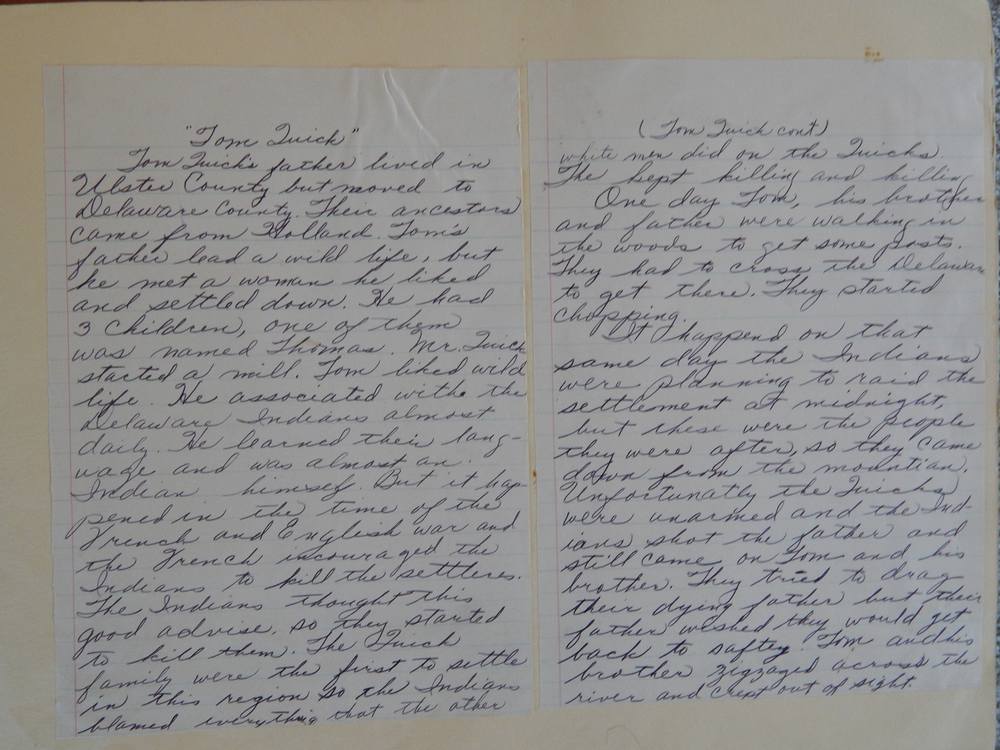 "Tom Quick"
Tom Quick's father lived in
Ulster County but moved to
Delaware County. Their ancestors
came from Holland. Tom's
father lead a wild life, but
he met a woman he liked
and settled down. He had
3 children, one of them
was named Thomas. Mr. Quick
started a mill. Tom liked wild
life. He associated withe the
Delaware Indians almost
daily. He learned their lang-
uage and was almost an
Indian himself. But it hap-
pened in the time of the
French and English war and
the French incouraged the
Indians to kill the settlers.
The Indians thought this
good advise, so they started
to kill them. The Quick
family were the first to settle
in this region so the Indians
blamed everything that the other
(Tom Quick cont)
white men did on the Quicks.
The kept killing and killing
One day Tom, his brother
and father were walking in
the woods to get some posts.
They had to cross the Delaware
to get there. They started
chopping.
It happend on that
same day the Indians
were planning to raid the
settlement at midnight,
but these were the people
they were after, so they came
down from the mountian.
Unfortunatly the Quicks
were unarmed and the Ind-
ians shot the father and
still came on Tom and his
brother. They tried to drag
their dying father but their
father wished they would get
back to saftey. Tom and his
brother zigzaged across the
river and crept out of sight.